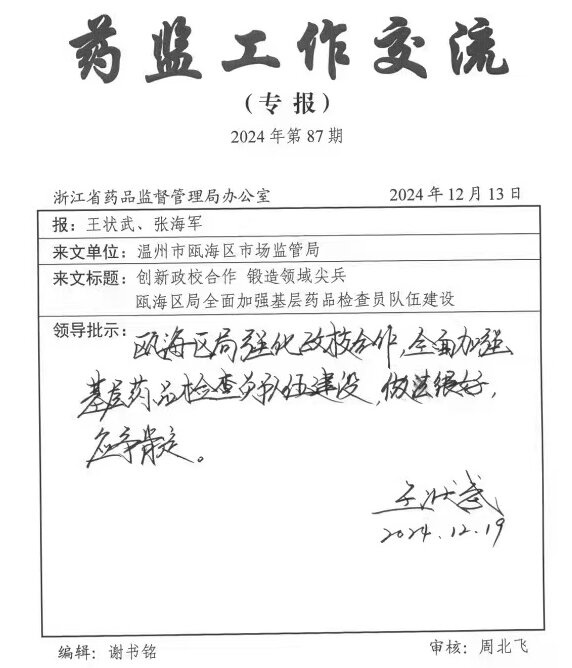 药监工作交流
（专报）
2024年第87期
浙江省药品监督管理局办公室 2024年12月13日
报：王状武、张海军
来文单位：温州市瓯海区市场监管局
来文标题：创新政校合作 锻造领域尖兵
瓯海区局全面加强基层药品检查员队伍建设
领导批示：瓯海区局强化政校合作，全面加强
基层药品检查员队伍建设，做法很好，
应予肯定。
王状武
2024.12.19
编辑：谢书铭 审核：周北飞